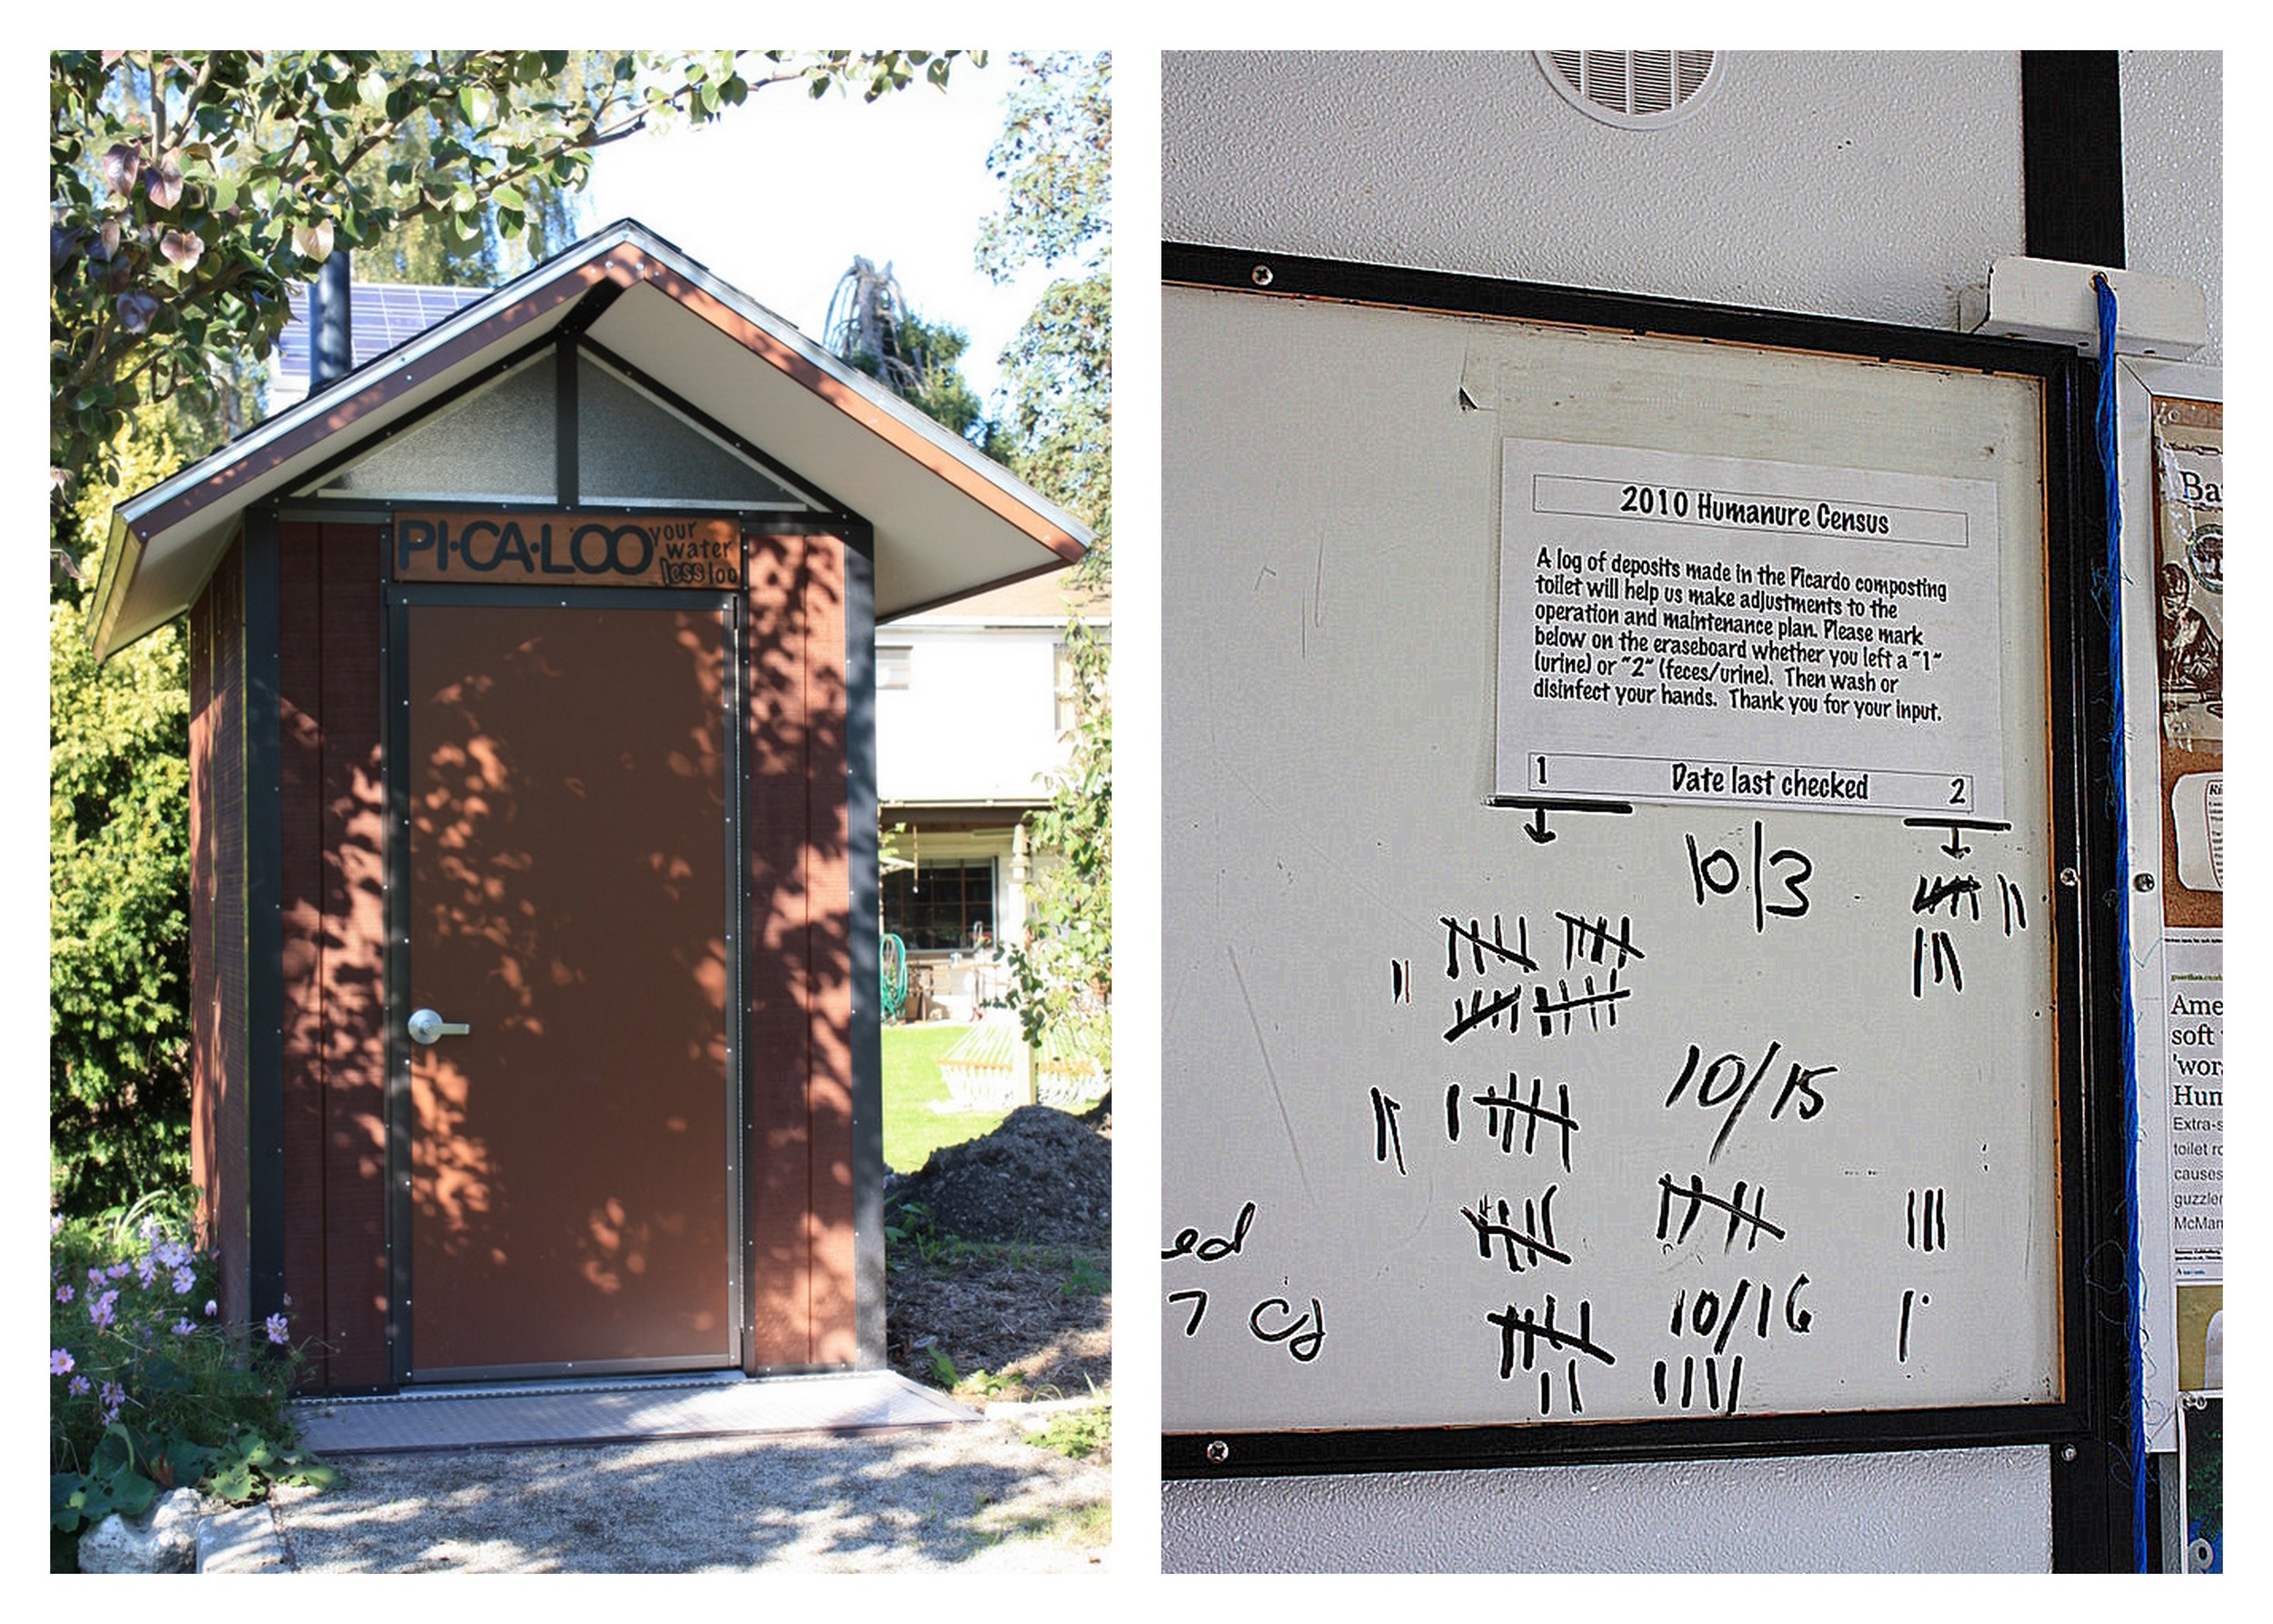 PI·CA·LOO your
water
less loo
2010 Humanure Census
A log of deposits made in the Picardo composting
toilet will help us make adjustments to the
operation and maintenance plan. Please mark
below on the eraseboard whether you left a "1"
(urine) or "2" (feces/urine). Then wash or
disinfect your hands. Thank you for your input.
1 Date last checked 2
10/3
10/15
10/16
ed
7 CJ
Ba
Ri
Ame
soft
'wor
Hum
Extra-s
toilet ro
causes
guzzler
McMan